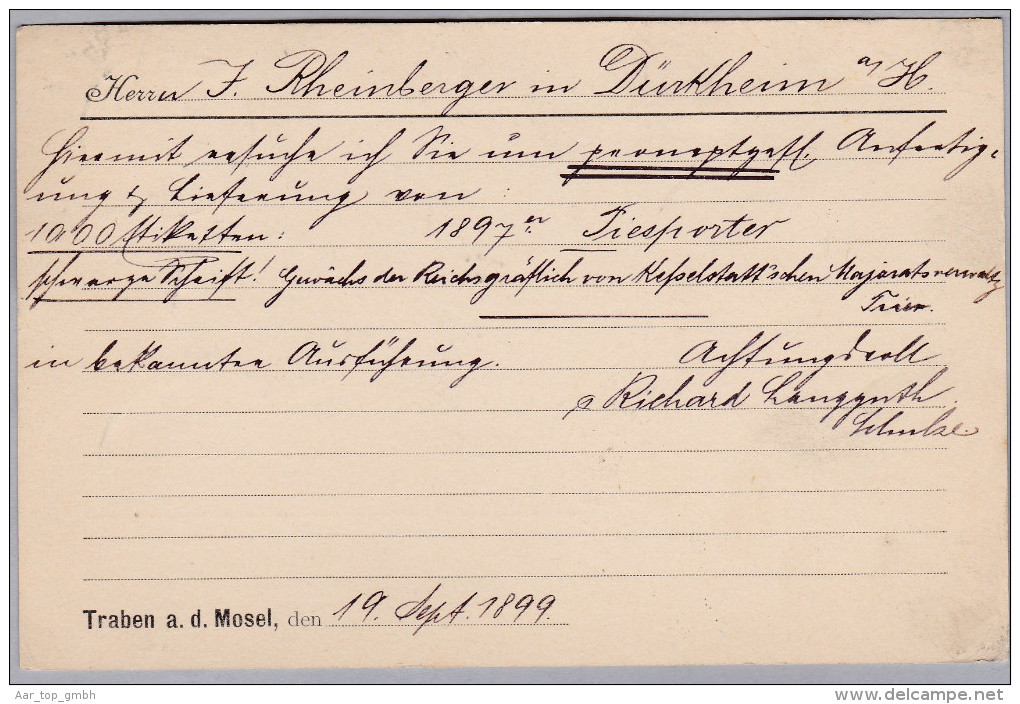 Herrn J. Rheinberger in Dürkheim a/H.
Hiermit ersuche ich Sie um promptgefl. Anfertig-
ung & Lieferung von :
1000 Etiketten: 1897er Piesporter
schwarze Schrift! Gewächs der Reichsgräflich von Kesselstatt'schen Majoratsverwaltg
Trier.
in bekannter Ausführung. Achtungsvoll
p Richard Langguth
Schulze.
Traben a. d. Mosel, den 19. Sept. 1899.
Aar_top_gmbh
www.delcampe.net